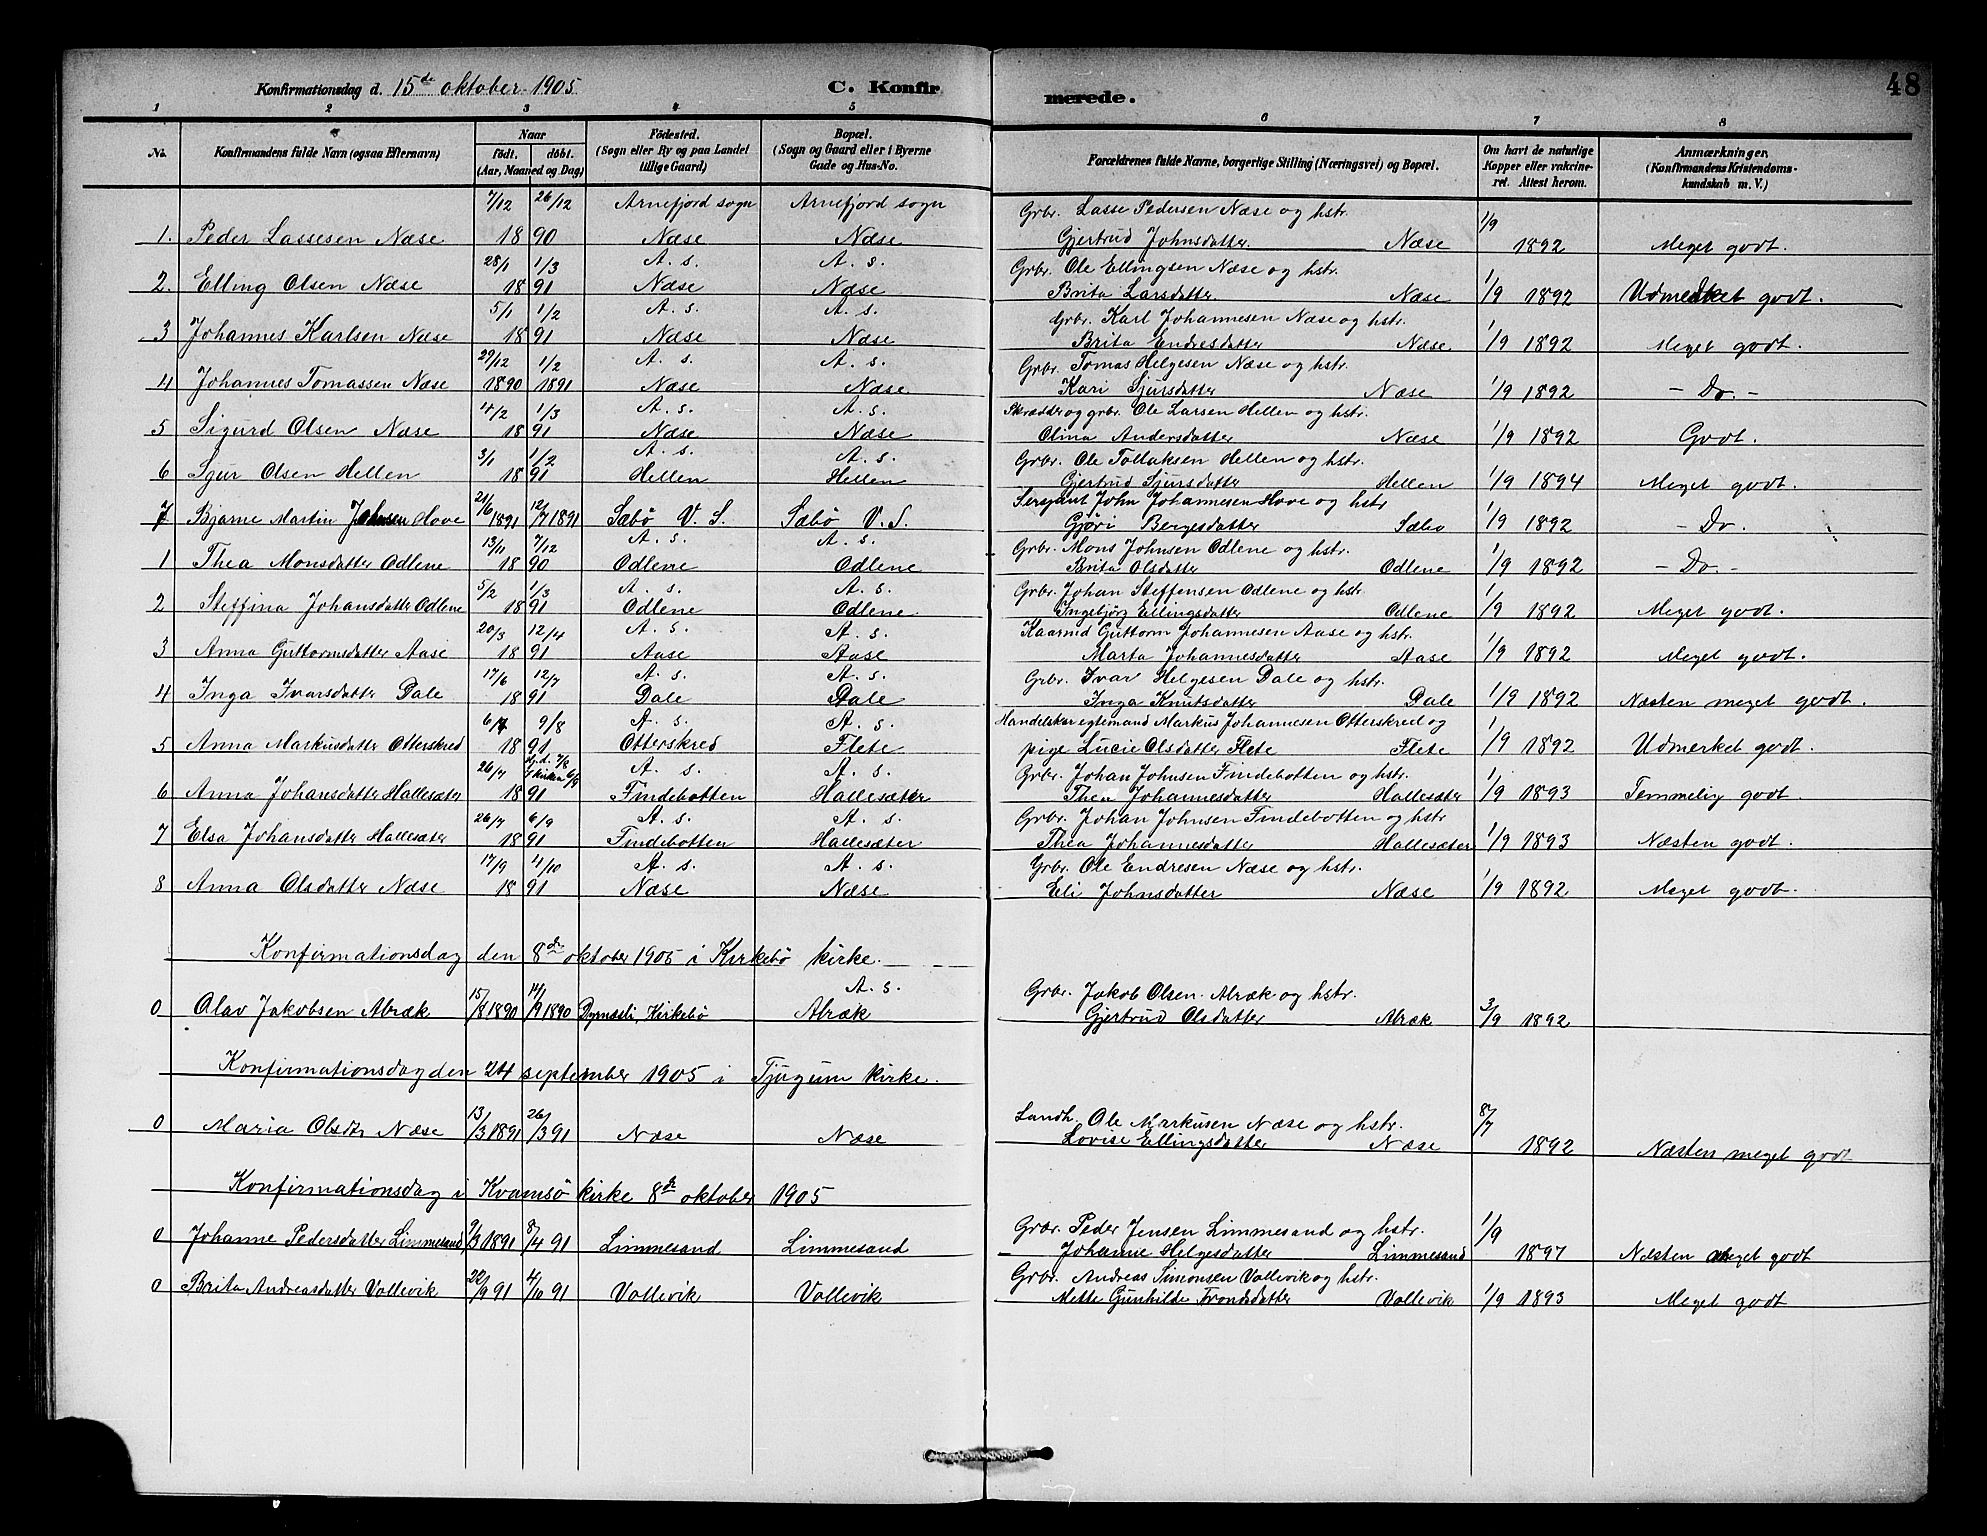 Konfirmationsdag d. 15de oktober 1905 C. Konfirmerede. 48
1 2 3 4 5 6 7 8
No. Konfirmandens fulde Navn (ogsaa Efternavn) Naar født. døbt. (Aar, Maaned og Dag) Fødested. (Sogn eller By og paa Landet tillige Gaard) Bopæl. (Sogn og Gaard eller i Byerne Gade og Hus-No. Forældrenes fulde Navne, borgerlige Stilling (Næringsvei) og Bopæl. Om havt de naturlige Kopper eller vakcineret. Attest herom. Anmærkninger, (Konfirmandens Kristendomskundskab m. V.)
7/12 26/12 Arnefjord sogn Arnefjord sogn Grbr. Lasse Pedersen Næse og hstr. 1/9
1. Peder Lassesen Næse 18 90 Næse Næse Gjertrud Johnsdatter Næse 1892 Meget godt.
28/1 1/3 A. s. A. s. Grbr. Ole Ellingsen Næse og hstr.
2. Elling Olsen Næse 18 91 Næse Næse Brita Larsdatter Næse 1/9 1892 Udmerket godt.
5/1 1/2 A. s. A. s. Grbr. Karl Johannesen Næse og hstr.
3 Johannes Karlsen Næse 18 91 Næse Næse Brita Endresdatter Næse 1/9 1892 Meget godt.
29/12 1/2 A. s. A. s. Grbr. Tomas Helgesen Næse og hstr.
4 Johannes Tomassen Næse 1890 1891 Næse Næse Kari Sjursdatter Næse 1/9 1892 - Do. -
4/2 1/3 A. s. A. s. Skrædder og grbr. Ole Larsen Hellen og hstr.
5 Sigurd Olsen Næse 18 91 Næse Næse Olina Andersdatter Næse 1/9 1892 Godt.
3/1 1/2 A. s. A. s. Grbr. Ole Tollaksen Hellen og hstr.
6 Sjur Olsen Hellen 18 91 Hellen Hellen Gjertrud Sjursdatter Hellen 1/9 1894 Meget godt.
21/6 12/7 Sersjant John Johannesen Hove og hstr
7 Bjarne Martin Johnsen Hove 1891 1891 Sæbø V. S. Sæbø V. S. Gjøri Bergesdatter Sæbø 1/9 1892 - Do.
13/11 7/12 A. s. A. s. Grbr. Mons Johnsen Odlene og hstr.
1 Thea Monsdatter Odlene 18 90 Odlene Odlene Brita Olsdatter Odlene 1/9 1892 - Do. -
5/2 1/3 A. s. A. s. Grbr. Johan Steffensen Odlene og hstr.
2 Steffina Johansdatter Odlene 18 91 Odlene Odlene Ingebjørg Ellingsdatter Odlene 1/9 1892 Meget godt.
20/3 12/4 A. s. A. s. Kaarmd Guttorm Johannesen Aase og hstr.
3 Anna Guttormsdatter Aase 18 91 Aase Aase Marta Johannesdatter Aase 1/9 1892 Meget godt.
17/6 12/7 A. s. A. s. Grbr. Ivar Helgesen Dale og hstr.
4 Inga Ivarsdatter Dale 18 91 Dale Dale Inga Knutsdatter Dale 1/9 1892 Næsten meget godt.
6/7 9/8 A. s. A. s. Handelskar egtemand Markus Johannesen Otterskred og
5 Anna Markusdatter Otterskred 18 91 Otterskred Flete pige Lucie Olsdatter Flete Flete 1/9 1892 Udmerket godt.
26/7 hj.d. 7/8 i kirken 6/9 A. s. A. s. Grbr. Johan Johnsen Findebotten og hstr.
6 Anna Johansdatter Hallesæter 18 91 Findebotten Hallesæter Thea Johannesdatter Hallesæter 1/9 1893 Temmelig godt
26/7 6/9 A. s. A. s. Grbr. Johan Johnsen Findebotten og hstr
7 Elsa Johansdatter Hallesæter 18 91 Findebotten Hallesæter Thea Johannesdatter Hallesæter 1/9 1893 Næsten godt.
17/9 4/10 A. s. A. s. Grbr. Ole Endresen Næse og hstr.
8 Anna Olsdatter Næse 18 91 Næse Næse Eli Johnsdatter Næse 1/9 1892 Meget godt.
Konfirmationsdag den 8de oktober 1905 i Kirkebø kirke.
15/8 14/9 A. s. Grbr. Jakob Olsen Alræk og hstr.
0 Olav Jakobsen Alræk 1890 1890 Dymæsli, Kirkebø Alræk Gjertrud Olsdatter Alræk 3/9 1892
Konfirmationsdag den 24 september 1905 i Tjugum kirke.
13/3 26/3 Landh. Ole Markusen Næse og hstr. 8/7
0 Maria Olsdtr Næse 1891 91 Næse Næse Lovise Ellingsdatter Næse 1892 Næsten meget godt
Konfirmationsdag i Kvamsø kirke 8de oktober 1905
9/3 8/4 Grbr. Peder Jensen Limmesand og hstr. 1/9
0 Johanne Pedersdatter Limmesand 1891 91 Limmesand Limmesand Johanne Helgesdatter Limmesand 1897 Næsten meget godt
22/9 4/10 Grbr. Andreas Simonsen Vollevik og hstr.
0 Brita Andreasdatter Vollevik 91 91 Vollevik Vollevik Mette Gunhilde Trondsdatter Vollevik 1/9 1893 Meget godt